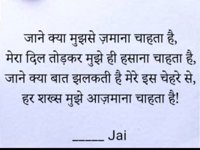 जाने क्या मुझसे ज़माना चाहता है,
मेरा दिल तोड़कर मुझे ही हसाना चाहता है,
जाने क्या बात झलकती है मेरे इस चेहरे से,
हर शख्स मुझे आज़माना चाहता है!
_____ Jai